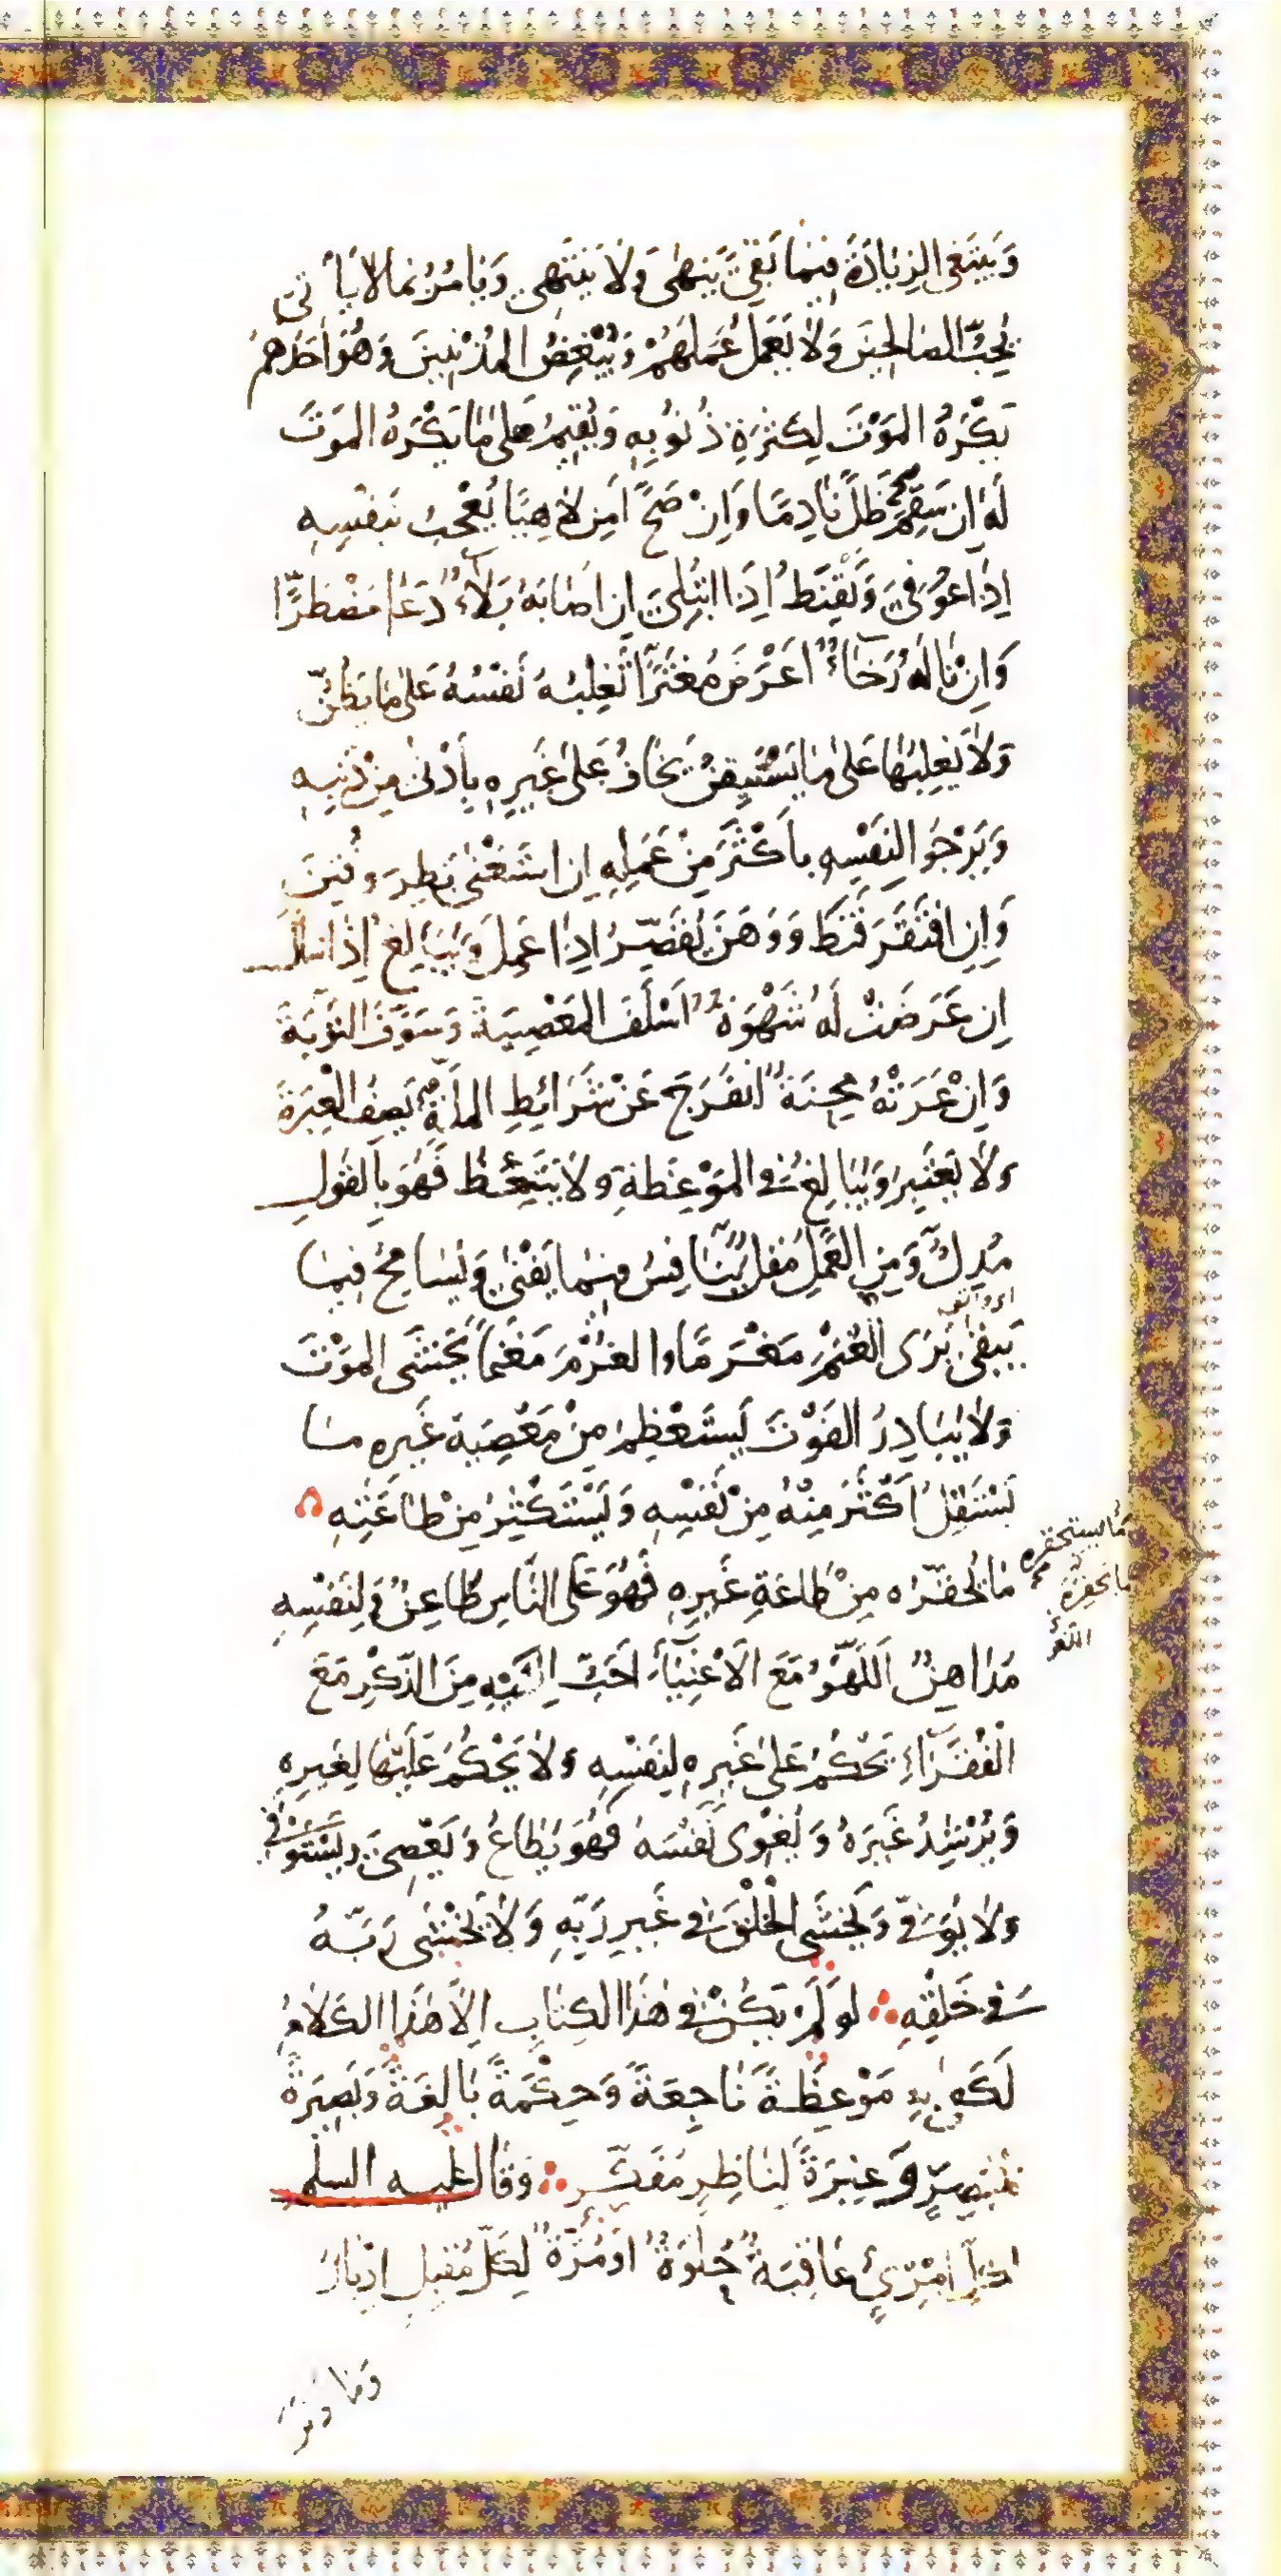 وَيَبْتَغِي الزِيَادَةَ فِيمَا بَقِيَ يَنْهٰى وَلَا يَنْتَهِي وَيَامُرُ بِمَا لَا يَأتِي
يُحِبُّ الصَالِحِينَ وَلَا يَعمَلُ عَمَلَهُمْ وَيُبْغِضُ المُذْنِبِينَ وَهُوَ احَدُهُمْ
يَكْرَهُ المَوْتَ لِكَثرَةِ ذُنُوبِهِ وَيُقِيمُ عَلىٰ مَا يَكْرَهُ المَوتَ
لَهُ اِن سَقِمَ ظَلَّ نَادِمًا وَاِنْ صَحَّ اَمِنَ لَاهِيًا يُعْجَبُ بِنَفْسِهِ
اِذَا عُوفِيَ وَيَقْنَطُ اِذَا ابْتُلِيَ اِن اَصَابَهُ بَلَآءٌ دَعَا مُضْطَرًّا
وَاِنْ نَالَهُ رَخَآءٌ اَعْرَضَ مُغْتَرًّا تَغلِبُهُ نَفْسُهُ عَلىٰ مَا يَظُنُّ
وَلَا يَغلِبُهَا عَلىٰ مَا يَسْتَيقِنُ يَخَافُ عَلىٰ غَيرِهِ بِأَدْنىٰ مِنْ ذَنبِهِ
وَيَرْجُوا لِنَفْسِهِ بِاَكْثَرَ مِنْ عَمَلِهِ اِن استَغْنىٰ بَطِرَ وَفُتِنَ
وَاِنِ افتَقَرَ قَنَطَ وَوَهَنَ يُقَصِّرُ اِذَا عَمِلَ وَيُبَالِغُ اِذَا سَأَلَ
اِن عَرَضَتْ لَهُ شَهْوَةٌ اَسْلَفَ المَعْصِيَةَ وَسَوَّفَ التَوْبَةَ
وَاِنْ عَرَتْهُ مِحنَةٌ انفَرَجَ عَنْ شَرَائِطِ المِلَّةِ يَصِفُ الْعِبرَةَ
وَلَا يَعْتَبِرُ وَيُبَالِغُ فِي المَوْعِظةِ وَلَا يَتَّعِظُ فَهُوَ بِالقَولِ
مُدِلٌّ وَمِنَ العَمَلِ مُقِلٌّ يُنَافِسُ فِيمَا يَفْنىٰ وَيُسَامِحُ فِيمَا
يَبقىٰ يَرَى الغُنْمَ مَغْرَمًا وَالغُرْمَ مَغنَمًا يَخْشَى المَوْتَ
وَلَا يُبَادِرُ الفَوْتَ يَستَعْظِمُ مِنْ مَعْصِيَةِ غَيرِهِ مَا
يَسْتَقِلُّ اَكْثَرَ مِنْهُ مِنْ نَفْسِهِ وَيَسْتَكْثِرُ مِنْ طَاعَتِهِ
مَا يُحَقِّرُهُ مِنْ طَاعَةِ غَيرِهِ فَهُوَ عَلَى النَاسِ طَاعِنٌ وَلِنَفْسِهِ
مَا يستحقره
ما يحقره
اللغو
مُدَاهِنٌ اَللَهْوُ مَعَ الاَغْنِيَآءِ اَحَبُّ اِلَيْهِ مِنَ الذِكْرِ مَعَ
الْفُقَرَآءِ يَحْكُمُ عَلىٰ غَيرِهِ لِنَفْسِهِ وَلَا يَحْكُمُ عَلَيْهَا لِغَيرِهِ
وَيُرْشِدُ غَيرَهُ وَيُغْوِى نَفْسَهُ فَهُوَ يُطَاعُ وَيَعْصِي وَيَسْتَوْفِي
وَلَا يُوفِي وَيَخشَى الْخَلْقَ فِي غَيرِ رَبِّهِ وَلَا يَخْشىٰ رَبَّهُ
فِي خَلْقِهِ ؞ لَو لَمْ يَكُنْ فِي هٰذَا الكِتَابِ اِلَّا هٰذَا الكَلَامُ
لَكَفى بِهِ مَوْعِظَةً نَاجِعَةً وَحِكْمَةً بَالِغَةً وَبَصِيرَةً
لمُبْصِرٍ وَعِبْرَةً لِنَاظِرٍ مُفَكِّرٍ ؞ وَقَالَ عليه السلم
لكلّ امْرِئٍ عَاقِبَةٌ حُلْوَةٌ اَوْ مُرَّةٌ لِكُلِّ مُقبِلٍ اِدْبَارٌ
وَمَا اَدبَرَ